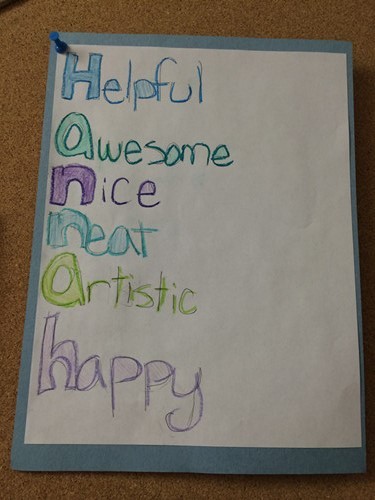 Helpful
awesome
nice
neat
artistic
happy